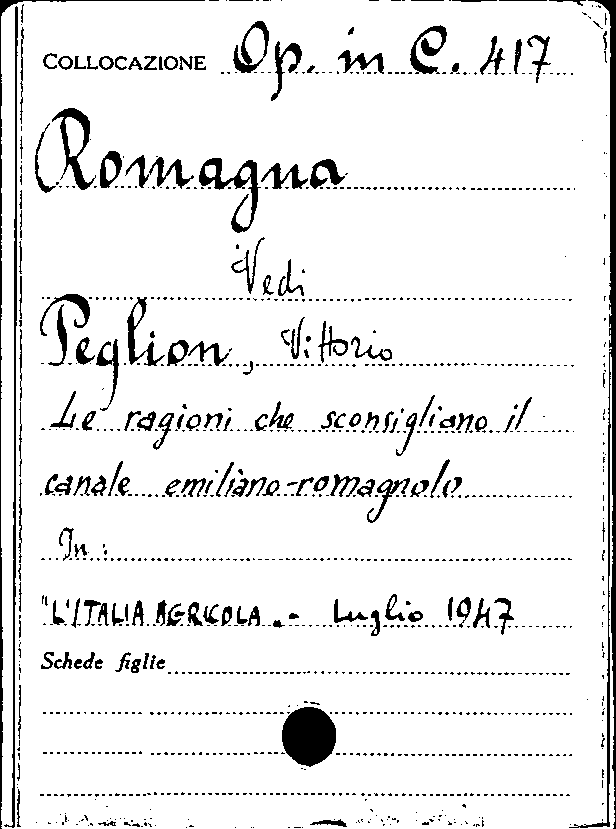 COLLOCAZIONE Op. in C. 417
Romagna
Vedi
Peglion, Vittorio
Le ragioni che sconsigliano il
canale emiliano-romagnolo
In:
"L'ITALIA AGRICOLA„ - Luglio 1947
Schede figlie